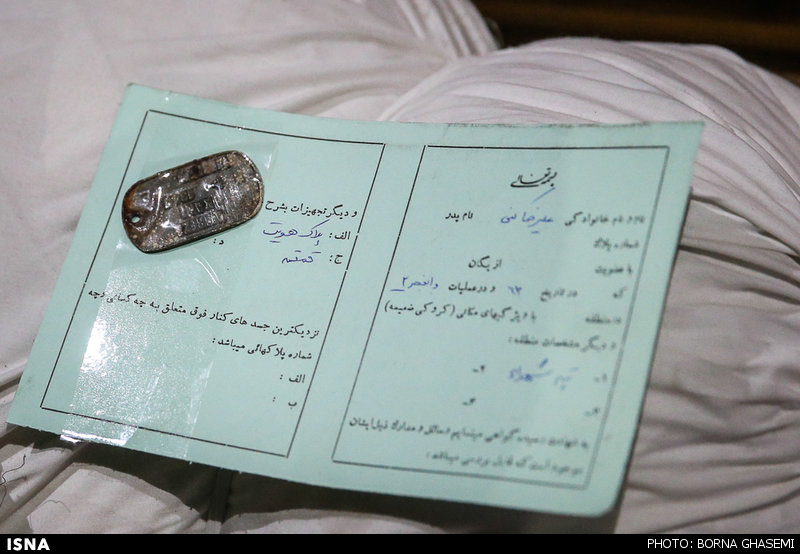 بسمه تعالی
نام و نام خانوادگی علیرضا نام پدر
شماره پلاک
با عضویت از یگان
که در تاریخ ۶۳ و در عملیات والفجر ۲
در منطقه با ویژگیهای مکانی (کروکی ضمیمه)
و دیگر مشخصات منطقه:
۱- تپه شهداء ۲-
۳-
به شهادت رسیده گواهی مینمایم وسائل و مدارک ذیل ایشان
موجود است که قابل بررسی میباشد:
و دیگر تجهیزات بشرح
الف: پلاک هویت
ج: قمقمه د:
نزدیکترین جسد های کنار فوق متعلق به چه کسانی و چه
شماره پلاکهائی میباشد:
الف:
ب:
ISNA
PHOTO: BORNA GHASEMI